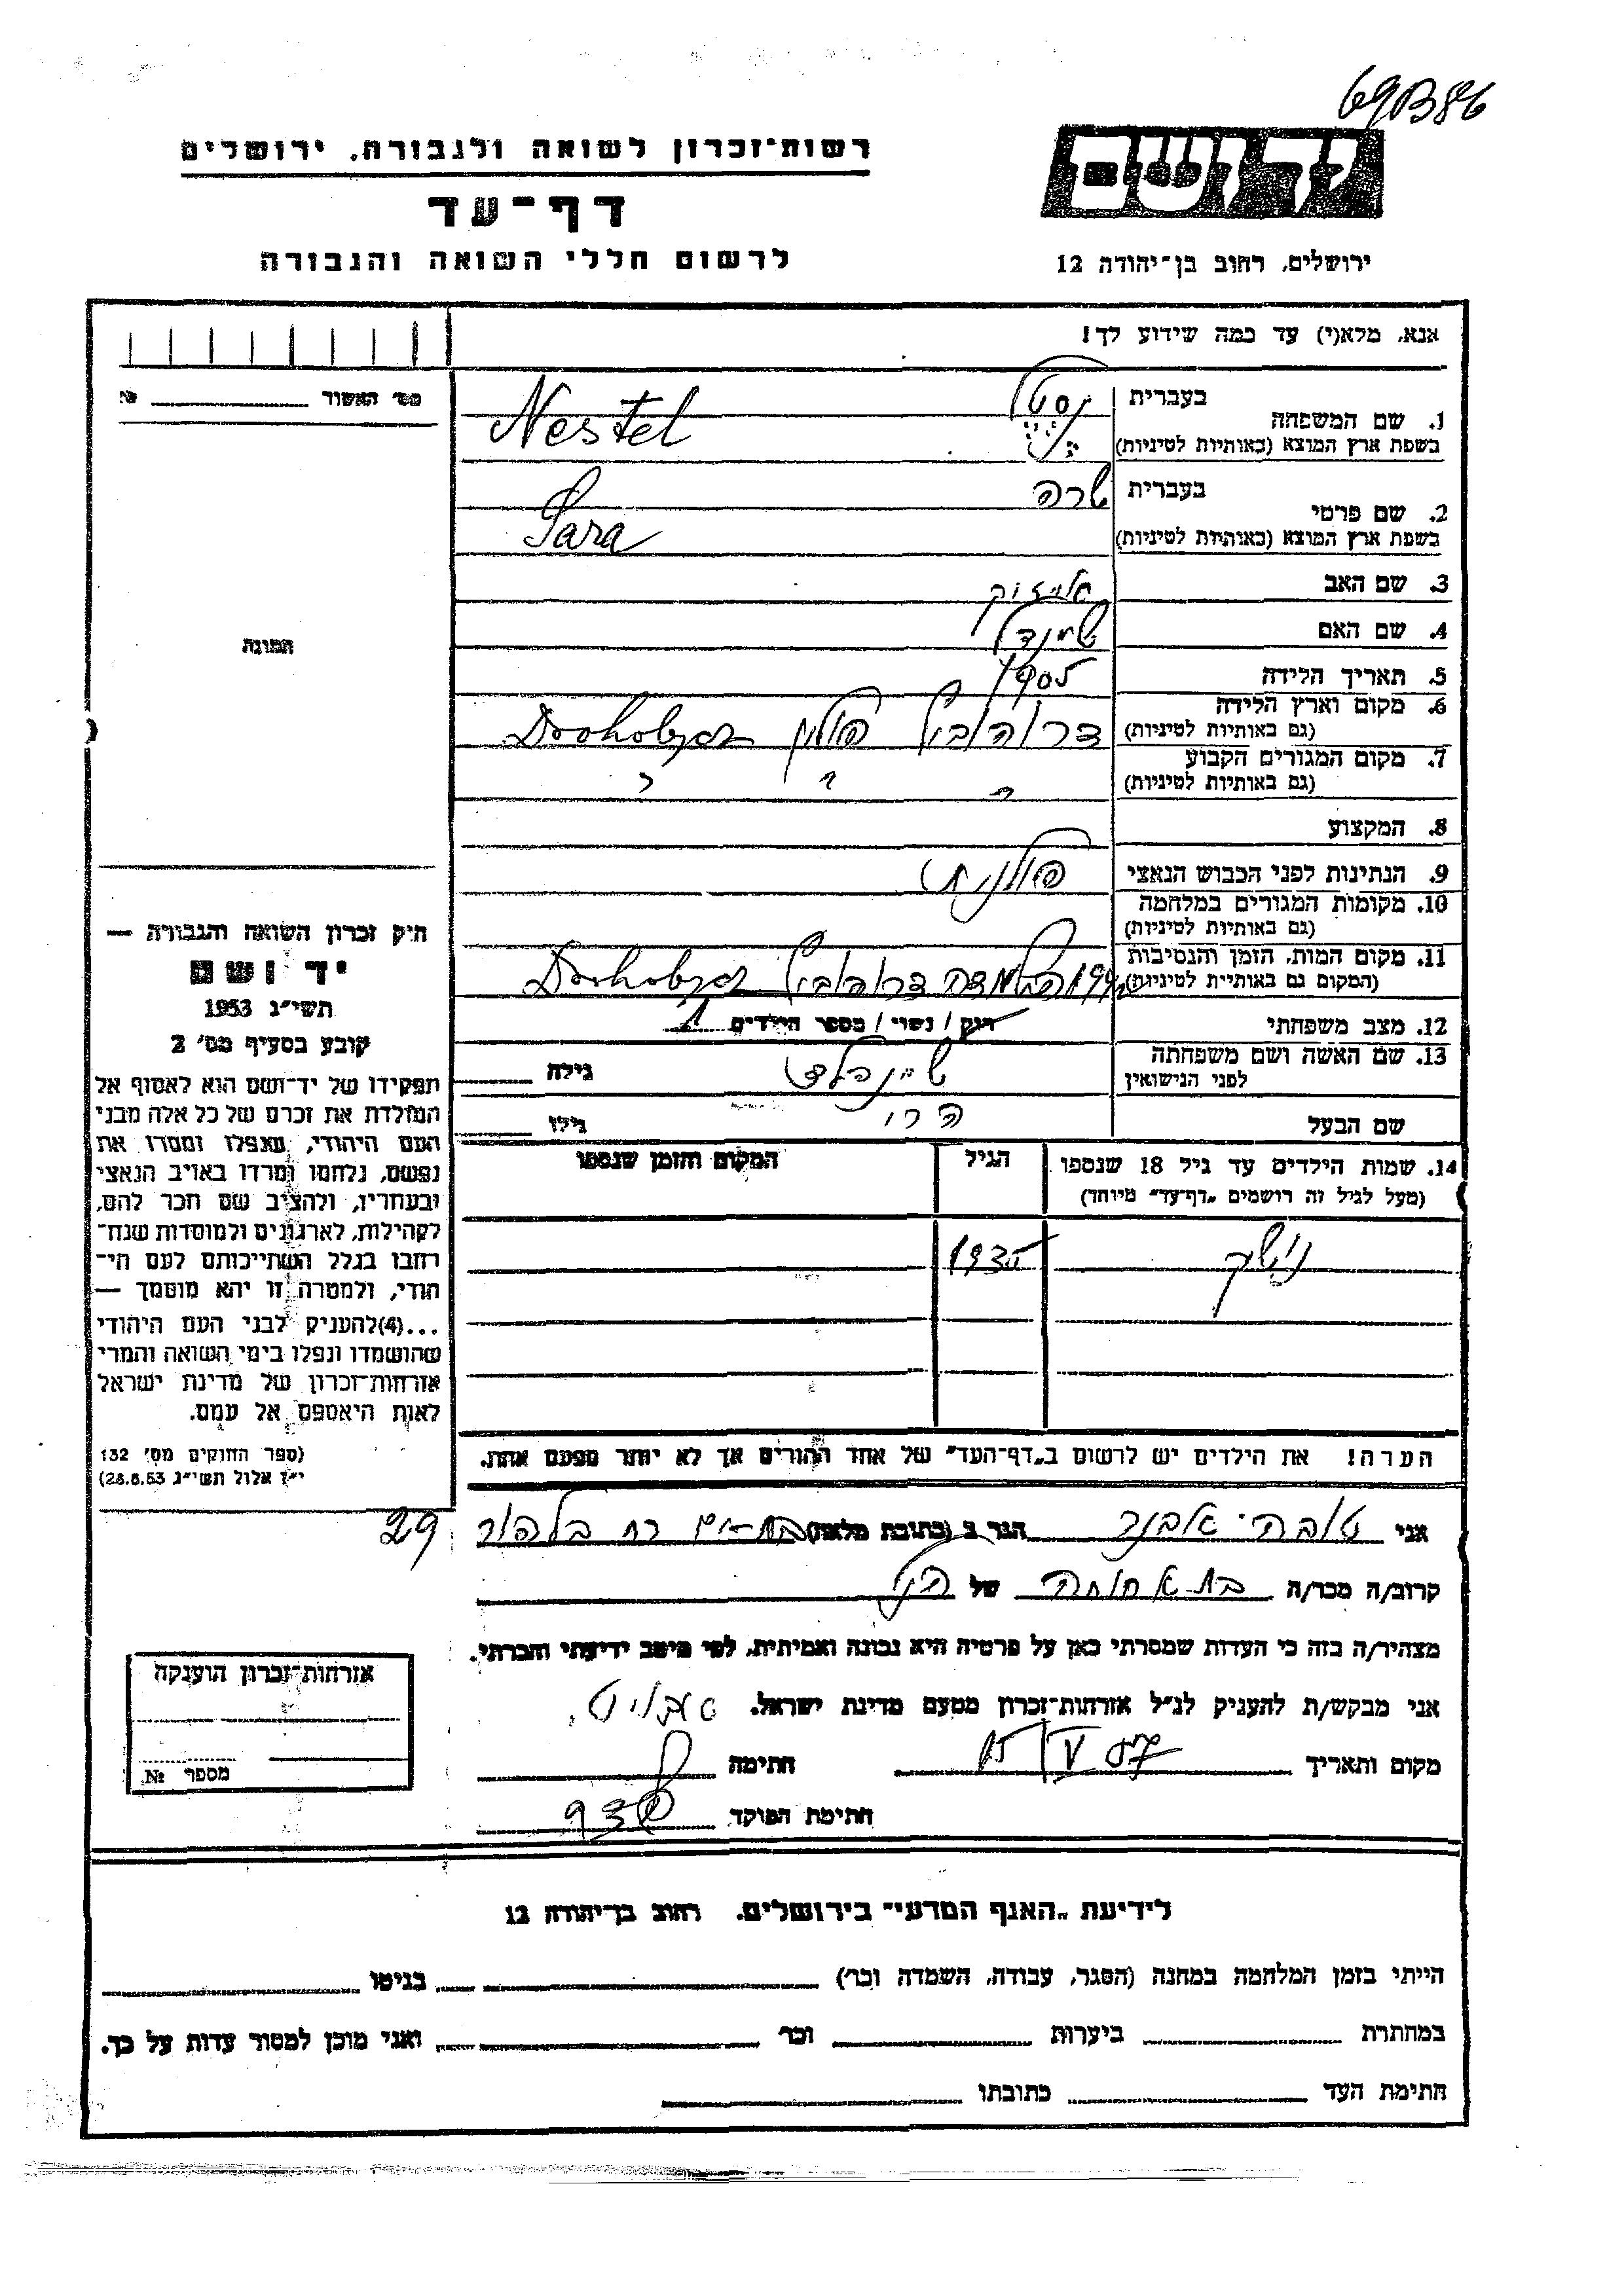 69B86
רשות־זכרון לשואה ולגבורה, ירושלים
יד ושם
דף־עד
לרשום חללי השואה והגבורה
ירושלים, רחוב בן־יהודה 12
אנא, מלא(י) עד כמה שידוע לך!
מס' האשור № 
1. שם המשפחה בעברית נסטל
בשפת ארץ המוצא (באותיות לטיניות) Nestel
2. שם פרטי בעברית שרה
בשפת ארץ המוצא (באותיות לטיניות) Sara
3. שם האב
4. שם האם
5. תאריך הלידה
6. מקום וארץ הלידה
(גם באותיות לטיניות) דרוהוביץ פולין Drohobycz
7. מקום המגורים הקבוע
(גם באותיות לטיניות)
8. המקצוע
9. הנתינות לפני הכבוש הנאצי פולנית
10. מקומות המגורים במלחמה
(גם באותיות לטיניות)
11. מקום המות, הזמן והנסיבות
(המקום גם באותיות לטיניות) דרוהוביץ Drohobycz
12. מצב משפחתי רוק / נשוי / מספר הילדים 1
13. שם האשה ושם משפחתה
לפני הנישואין גילה
שם הבעל גילו
התמונה
14. שמות הילדים עד גיל 18 שנספו הגיל המקום והזמן שנספו
(מעל לגיל זה רושמים „דף־עד" מיוחד)
הערה! את הילדים יש לרשום ב„דף־העד" של אחד ההורים אך לא יותר מפעם אחת.
חיק זכרון השואה והגבורה —
יד ושם
תשי"ג 1953
קובע בסעיף מס' 2
תפקידו של יד־ושם הוא לאסוף אל
המולדת את זכרם של כל אלה מבני
העם היהודי, שנפלו ומסרו את
נפשם, נלחמו ומרדו באויב הנאצי
ובעוזריו, ולהציב שם וזכר להם,
לקהילות, לארגונים ולמוסדות שנח־
רבו בגלל השתייכותם לעם הי־
הודי, ולמטרה זו יהא מוסמך —
...(4)להעניק לבני העם היהודי
שהושמדו ונפלו בימי השואה והמרי
אזרחות־זכרון של מדינת ישראל
לאות היאספם אל עמם.
(ספר החוקים מס' 132
י"ז אלול תשי"ג 28.8.53)
אני טובה אבנר הגר ב (כתובת מלאה) בת־ים רח 29
קרוב/ה מכר/ה בת אחותה של הנ"ל
מצהיר/ה בזה כי העדות שמסרתי כאן על פרטיה היא נכונה ואמיתית, לפי מיטב ידיעתי והכרתי.
אני מבקש/ת להעניק לנ"ל אזרחות־זכרון מטעם מדינת ישראל.
מקום ותאריך חתימה
חתימת הפוקד
אזרחות־זכרון הוענקה
מספר №
לידיעת „האגף המדעי" בירושלים. רחוב בן־יהודה 12
הייתי בזמן המלחמה במחנה (הסגר, עבודה, השמדה וכו') בגיטו
במחתרת ביערות וכו' ואני מוכן למסור עדות על כך.
חתימת העד כתובתו